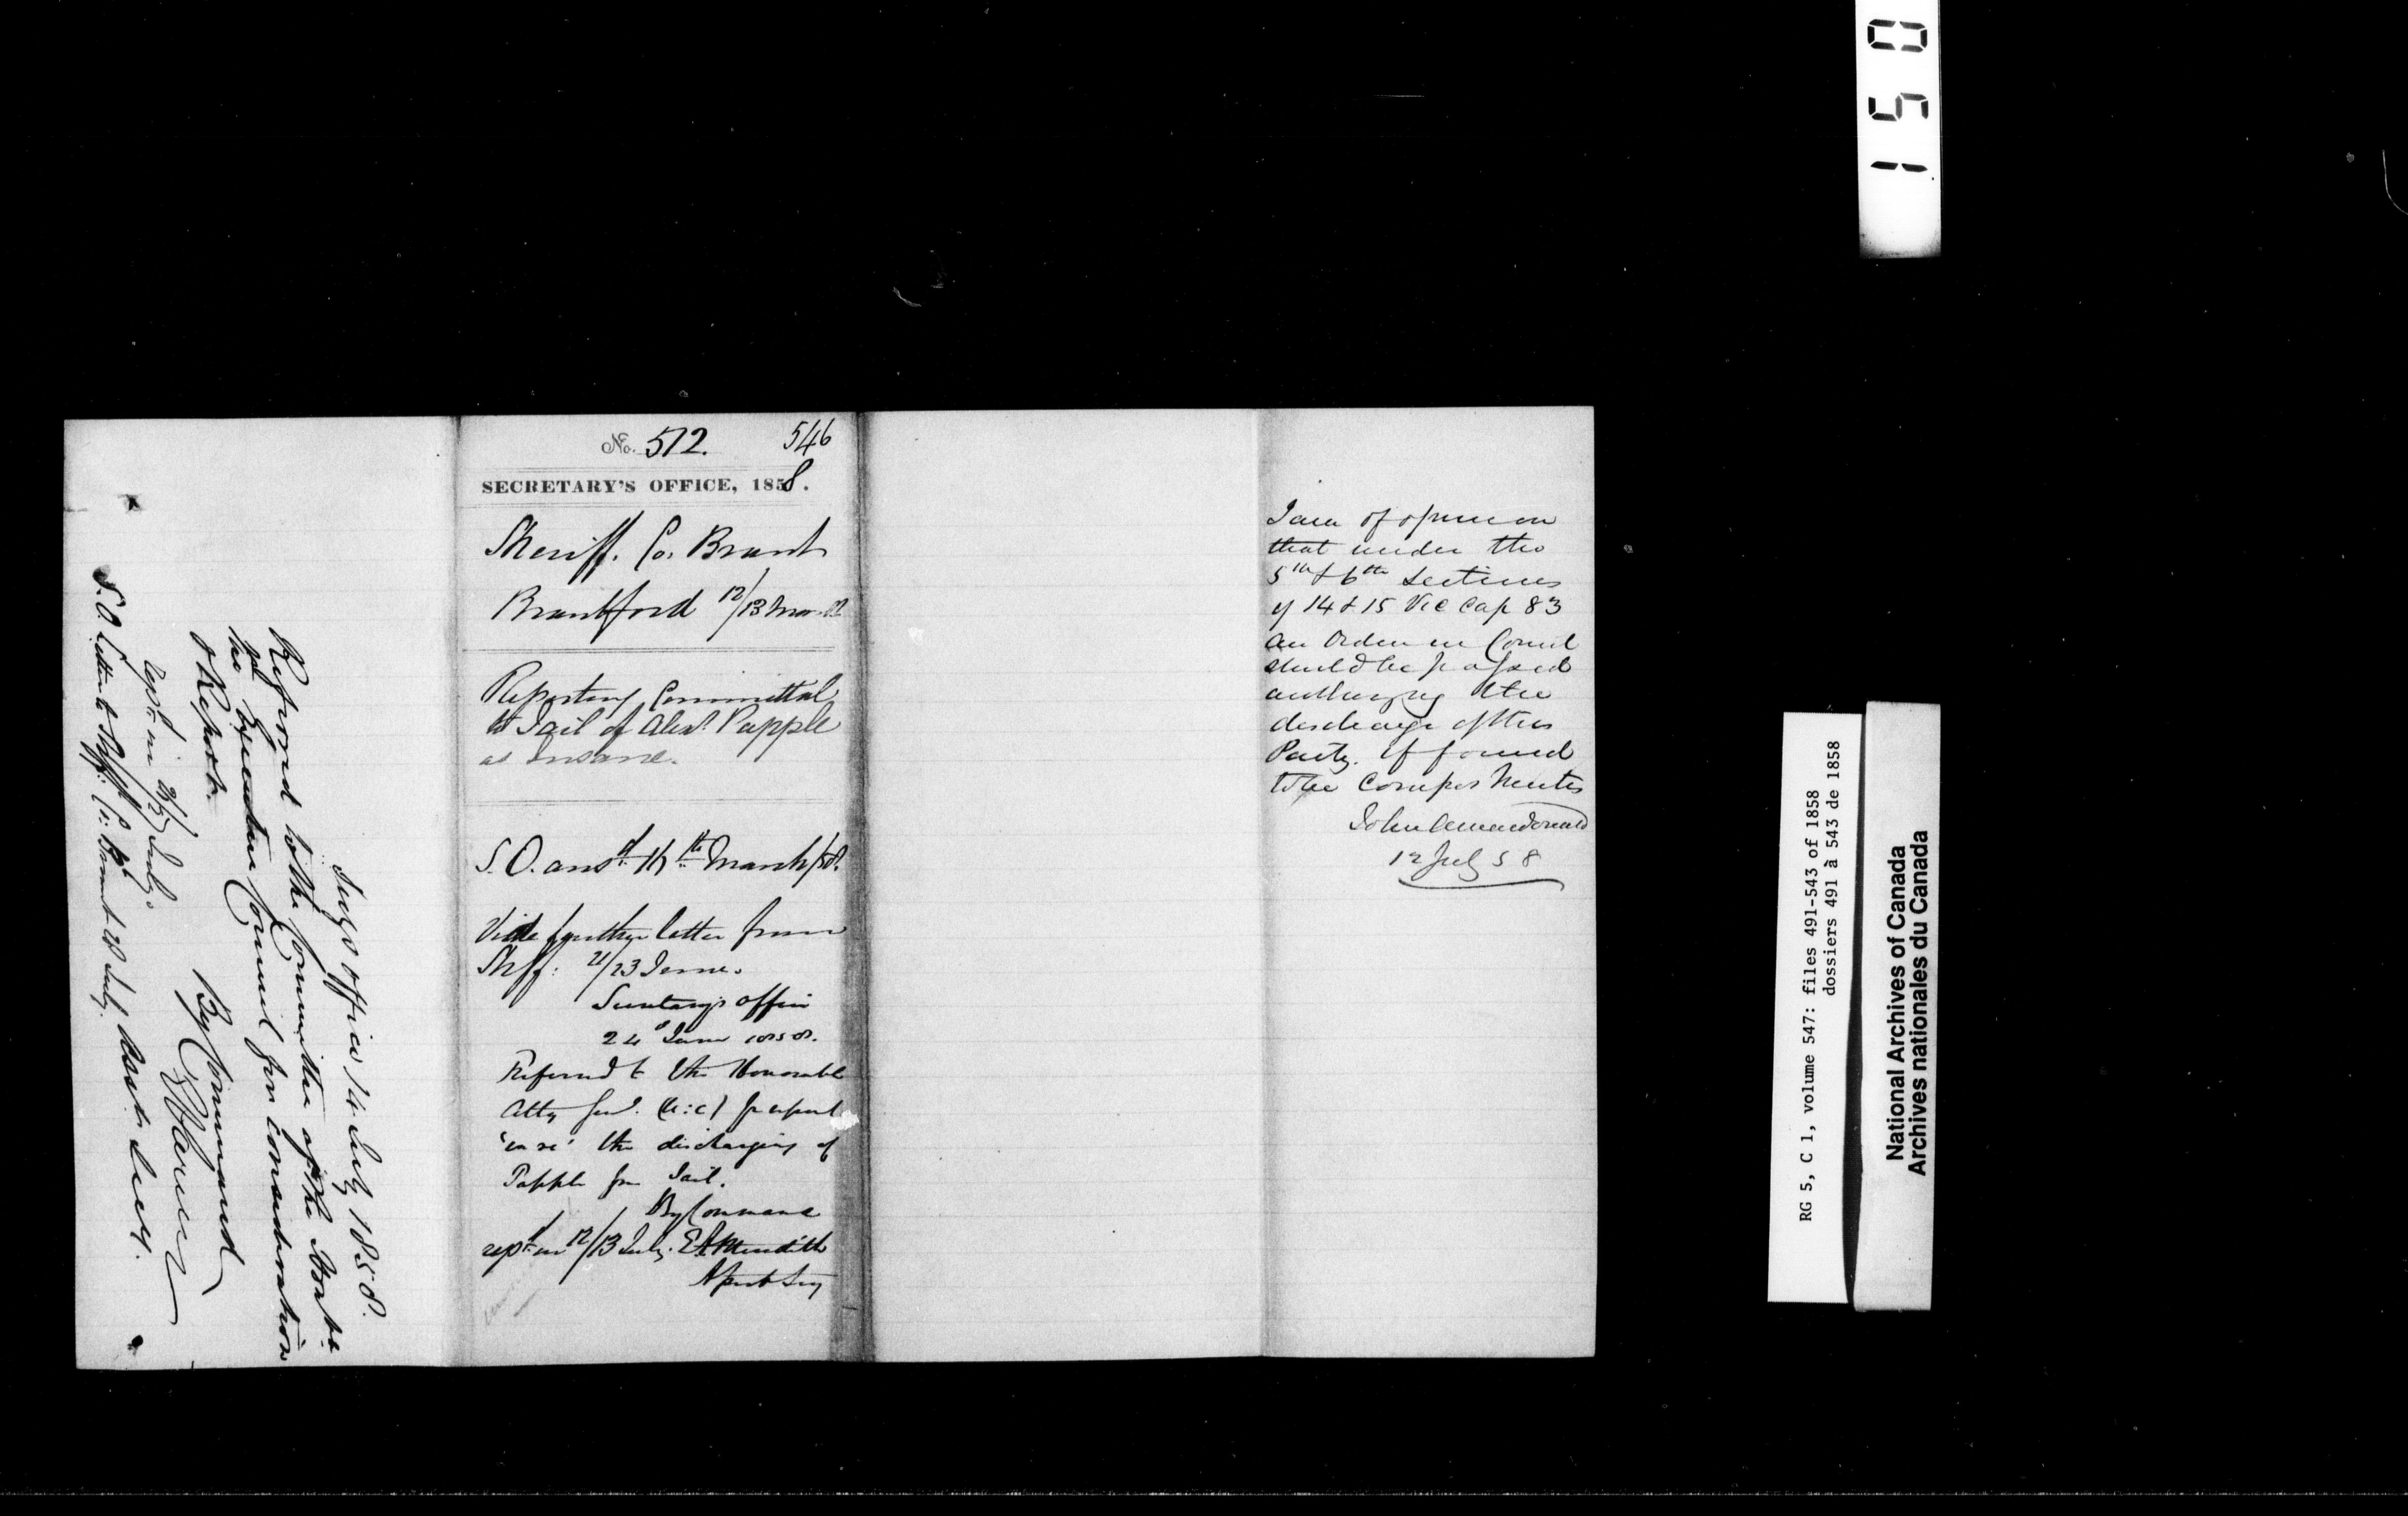 No. 512. 546
SECRETARY'S OFFICE, 1858.
Sheriff. Co. Brant
Brantford 12/13 Mar.
Reporting Committal
to Jail of Alexr. Papple
as Insane.
S. O. ansd. 16th March/58.
Vide further letter from
Shff: 21/23 June.
Secretary's office
24 June 1858.
Referred to the Honorable
Atty Genl. (U:C) for report
'in re' the discharging of
Papple fm Jail.
By Command
repd. in 12/13 July. E A Meredith
Asst Secy
Secys office 14 July 1858.
Referred to the Committee of the Honble
the Executive Council for consideration
& Report.
By Command
Repd. in July.
S. O. Letter to Shff: Co: Brant 28 July
Asst. Secy.
I am of opinion
that under the
5th & 6th Sections
of 14 & 15 Vic Cap 83
an Order in Council
should be passed
authorizing the
discharge of this
Party. if found
to be Compos Mentis
John A Macdonald
12 July 58
051
RG 5, C 1, volume 547: files 491-543 of 1858
dossiers 491 à 543 de 1858
National Archives of Canada
Archives nationales du Canada